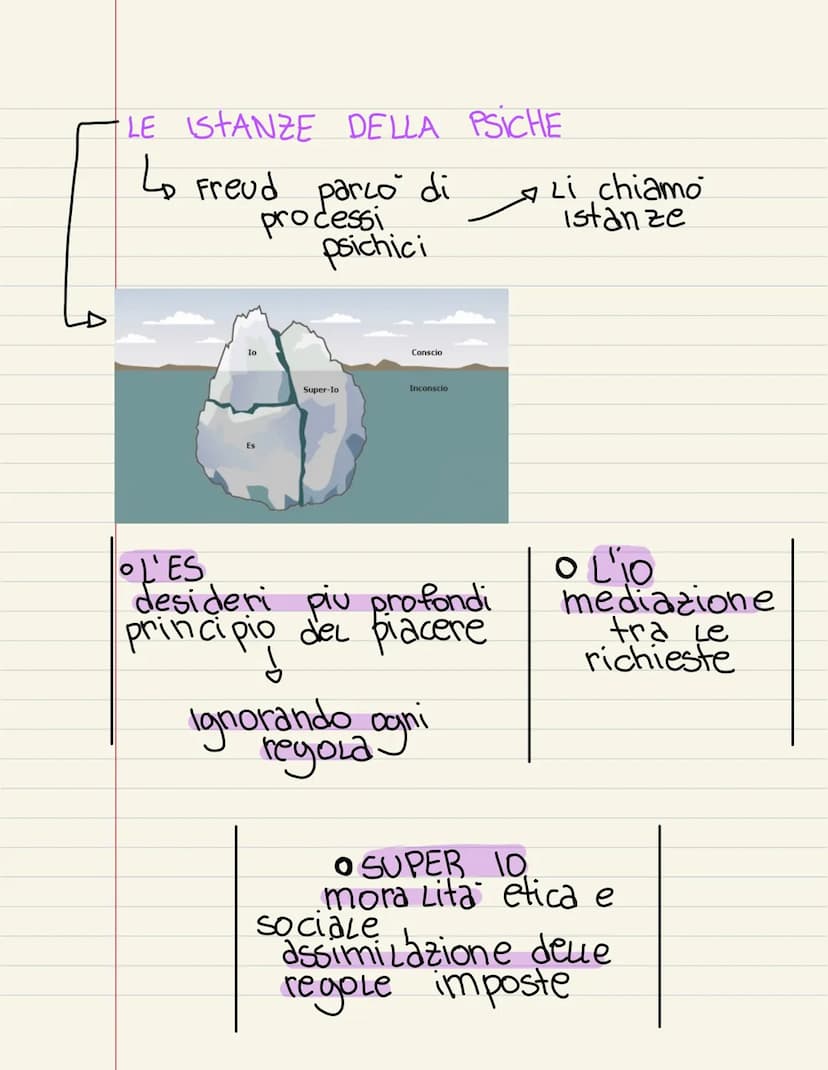 LE ISTANZE DELLA PSICHE
Freud parlò di
processi
psichici
Li chiamò
istanze
Io
Conscio
Super-Io
Inconscio
Es
L'ES
desideri più profondi
principio del piacere
Ignorando ogni
regola
L'io
mediazione
tra le
richieste
SUPER IO
moralità etica e
sociale
assimilazione delle
regole imposte